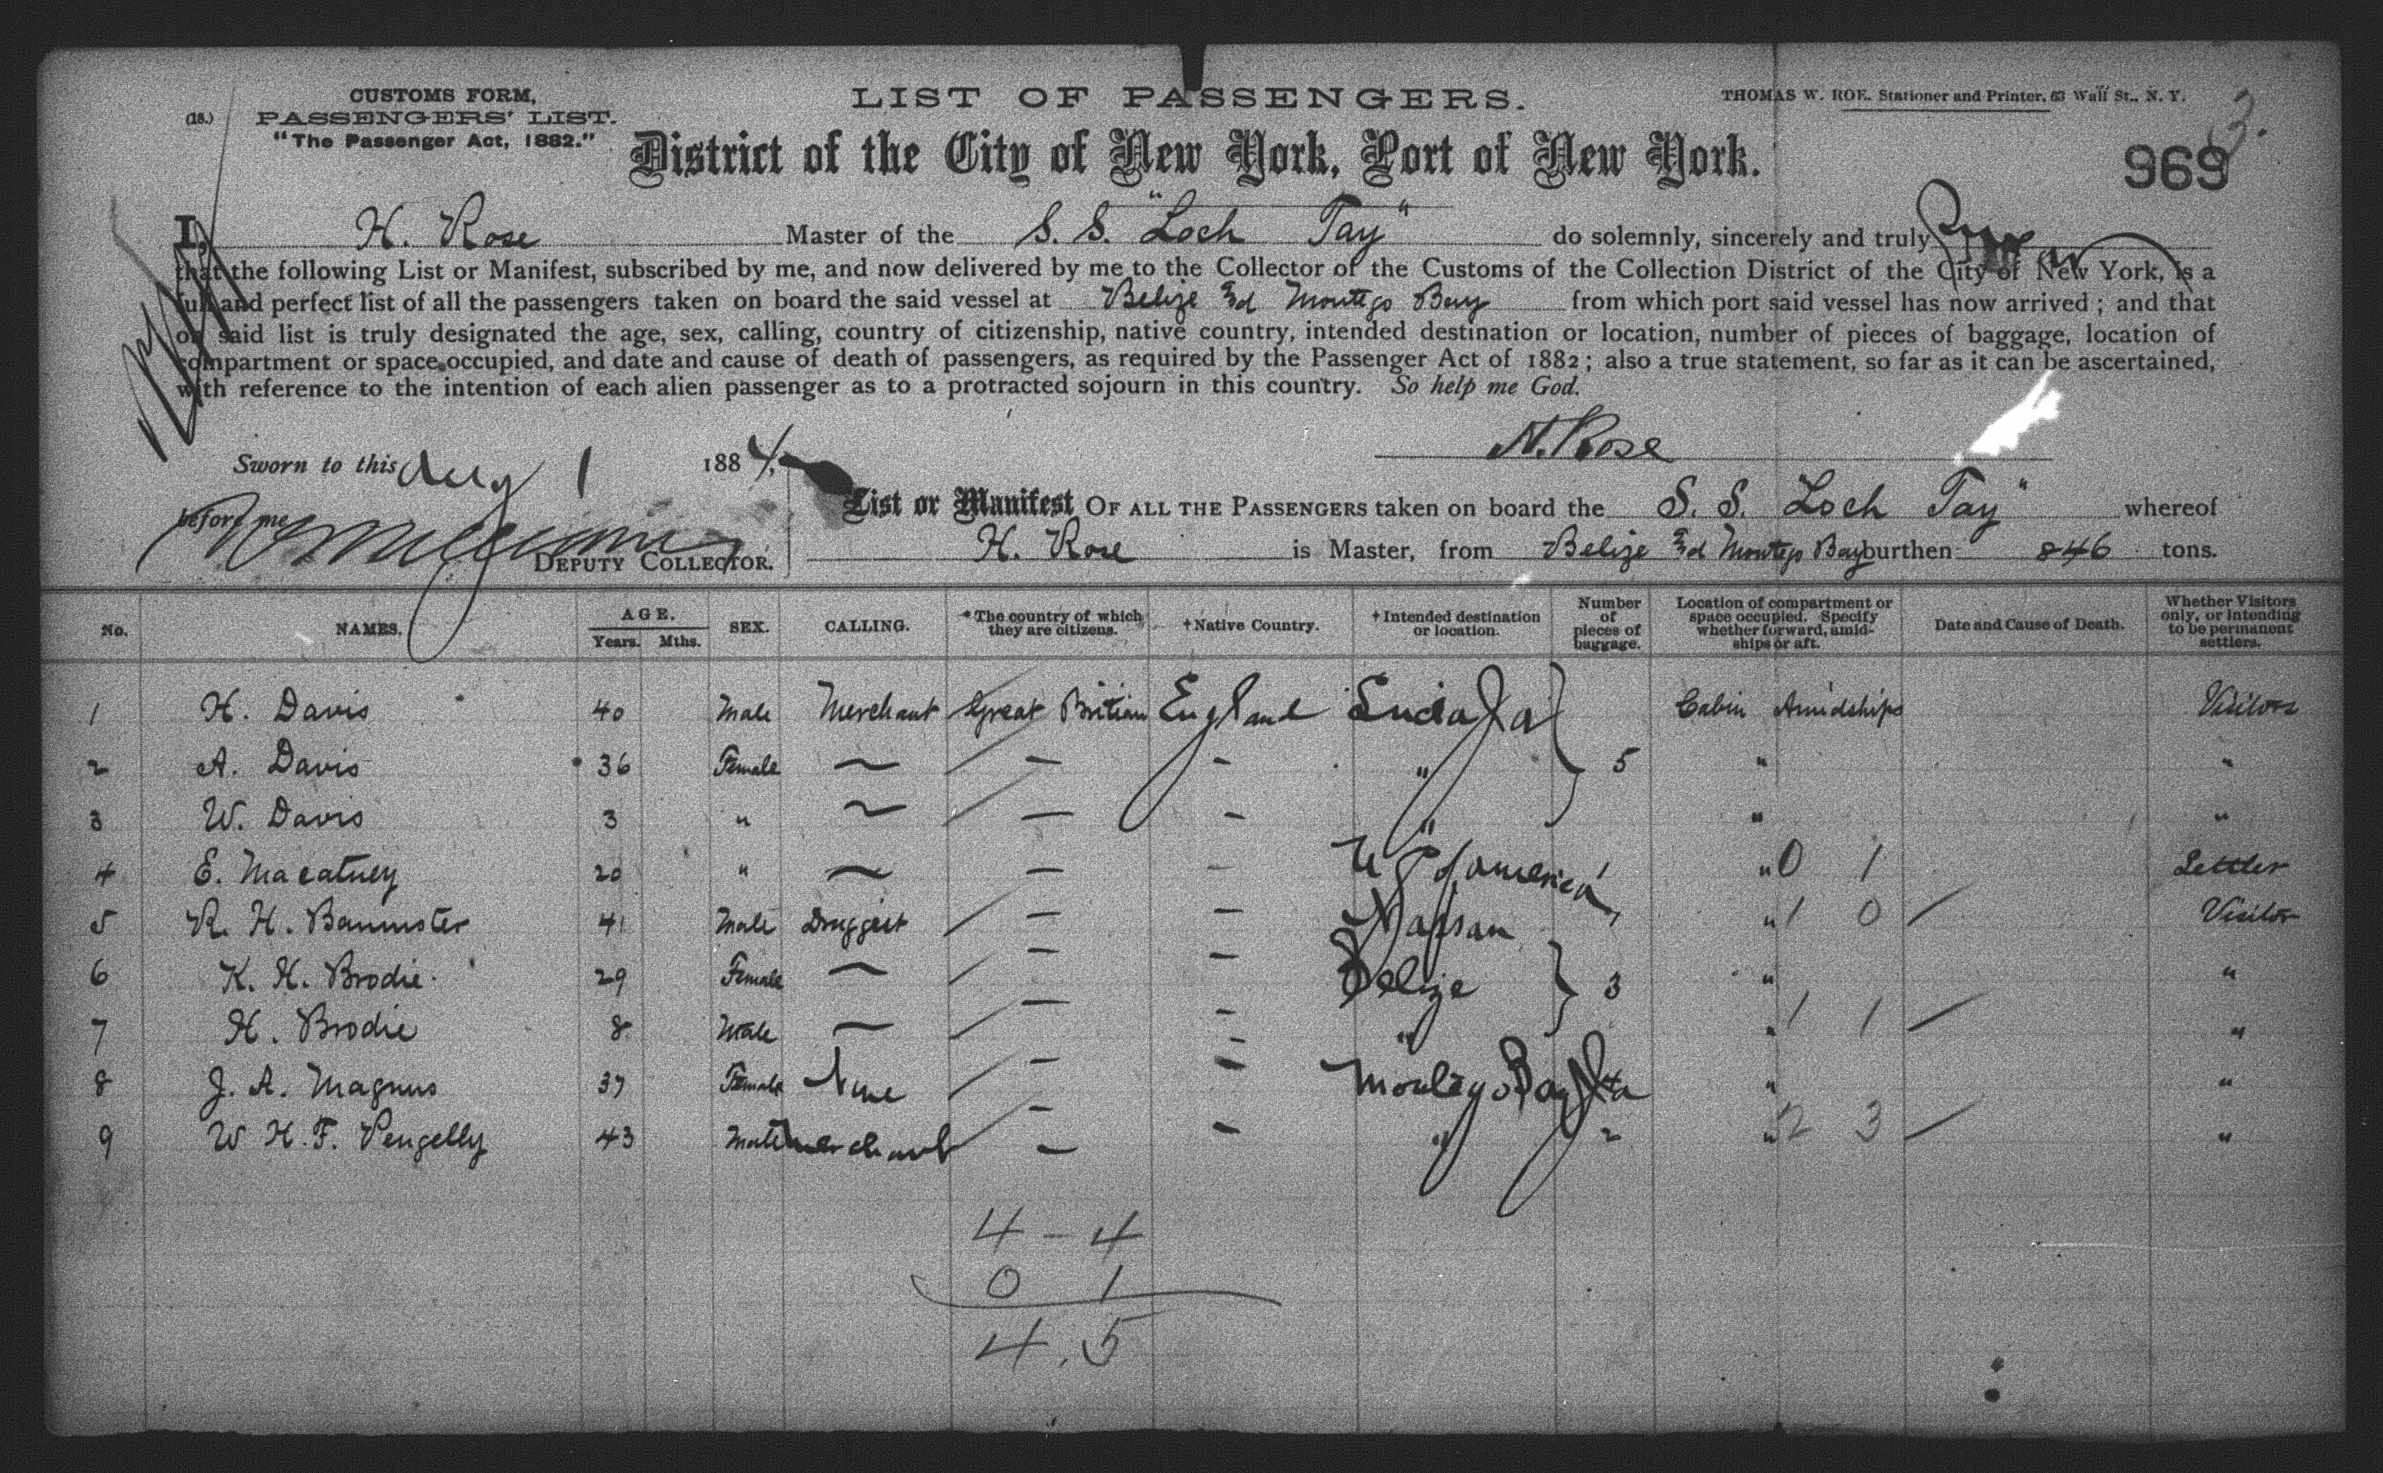 CUSTOMS FORM,
(18.) PASSENGERS' LIST.
"The Passenger Act, 1882."
LIST OF PASSENGERS.
THOMAS W. ROE. Stationer and Printer, 63 Wall St., N. Y.
3.
District of the City of New York, Port of New York.
969
I, H. Rose Master of the S. S. "Loch Tay" do solemnly, sincerely and truly
that the following List or Manifest, subscribed by me, and now delivered by me to the Collector of the Customs of the Collection District of the City of New York, is a
full and perfect list of all the passengers taken on board the said vessel at Belize & Montego Bay from which port said vessel has now arrived; and that
on said list is truly designated the age, sex, calling, country of citizenship, native country, intended destination or location, number of pieces of baggage, location of
compartment or space occupied, and date and cause of death of passengers, as required by the Passenger Act of 1882; also a true statement, so far as it can be ascertained,
with reference to the intention of each alien passenger as to a protracted sojourn in this country. So help me God.
H. Rose
Sworn to this Aug 1 1884,
before me
DEPUTY COLLECTOR.
List or Manifest OF ALL THE PASSENGERS taken on board the S. S. Loch Tay" whereof
H. Rose is Master, from Belize & Montego Bay burthen 846 tons.
No. NAMES. AGE. Years. Mths. SEX. CALLING. *The country of which they are citizens. †Native Country. †Intended destination or location. Number of pieces of baggage. Location of compartment or space occupied. Specify whether forward, amidships or aft. Date and Cause of Death. Whether Visitors only, or intending to be permanent settlers.
1 H. Davis 40 Male Merchant Great Britian England Lucia Ja Cabin Amidships Visitors
2 A. Davis 36 Female — — — " 5 " "
3 W. Davis 3 " — — — " " "
4 E. Macatney 20 " — — — U S of America 1 " 0 1 Settler
5 R. H. Bannister 41 Male Druggist — — Nassau 1 " 1 0 Visitor
6 K. H. Brodie 29 Female — — — Belize 3 " "
7 H. Brodie 8 Male — — — " " 1 1 "
8 J. A. Magnus 37 Female None — — Montego Bay Ja 4 " "
9 W H. F. Pengelly 43 Male Merchant — — " 2 " 2 3 "
4 - 4
0 1
4 . 5